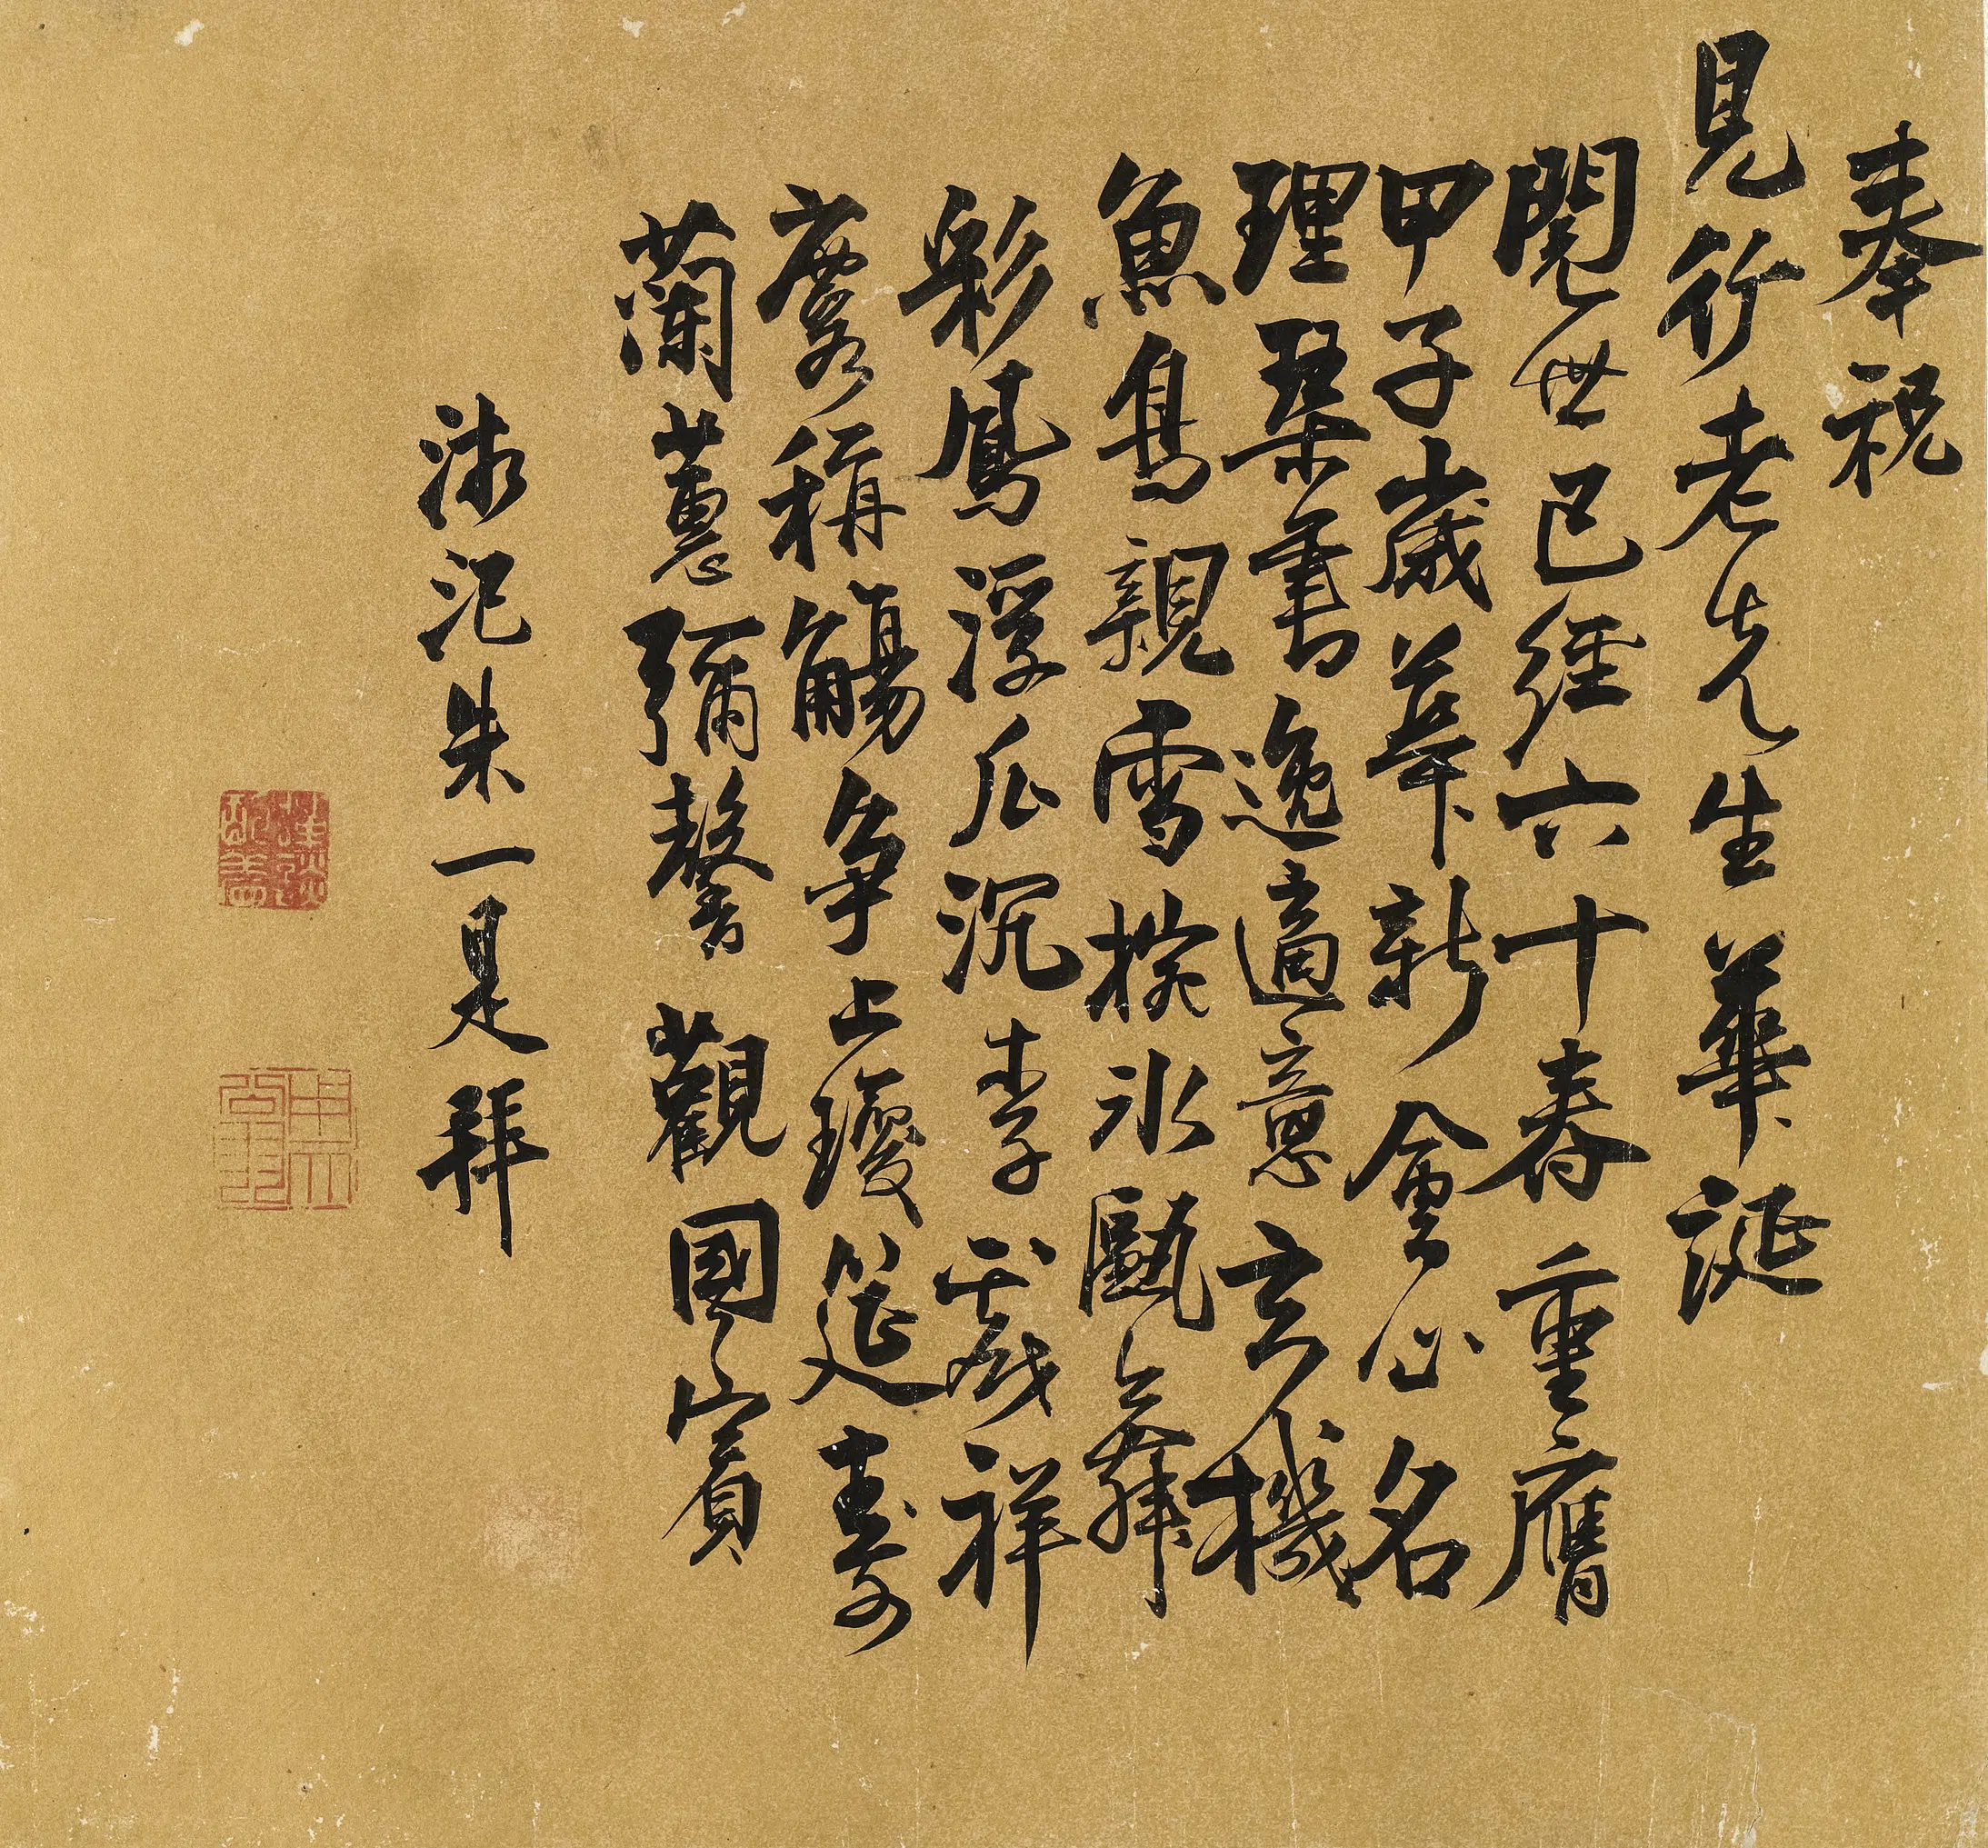 奉祝
見行老先生華誕
閱世已經六十春重膺
甲子歲華新會心名
理琴書逸適意玄機
魚鳥親雪椀冰甌舞
彩鳳浮瓜沉李戲祥
麐稱觴爭上瓊筵壽
蘭蕙彌馨觀國賓
汜朱一是拜